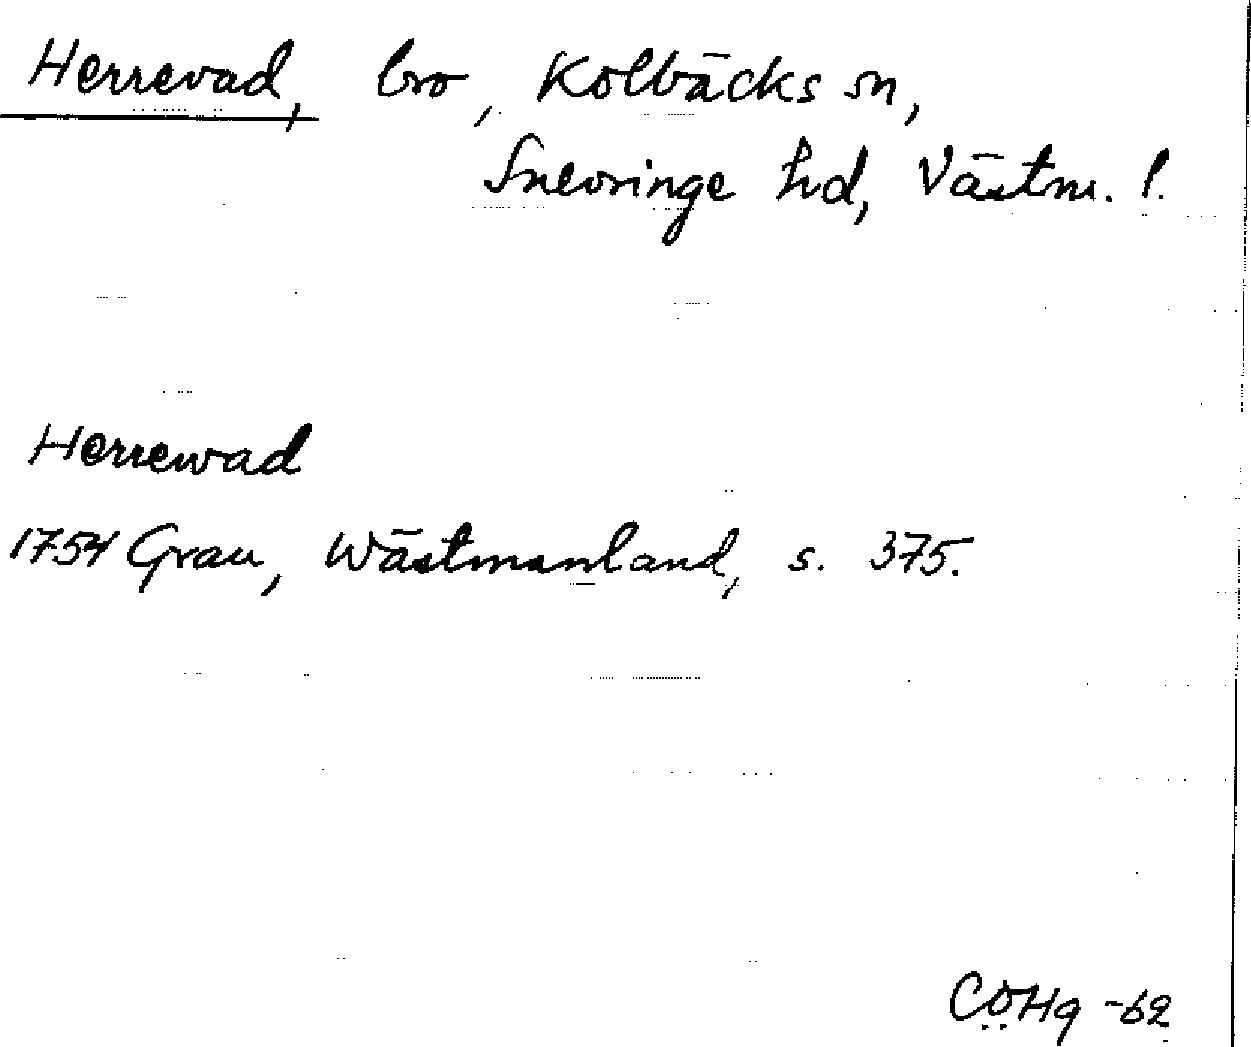 Herrevad, bro, Kolbäcks sn,
Snevringe hd, Västm. l.
Herrewad
1754 Grau, Wästmanland, s. 375.
CÖHg -62